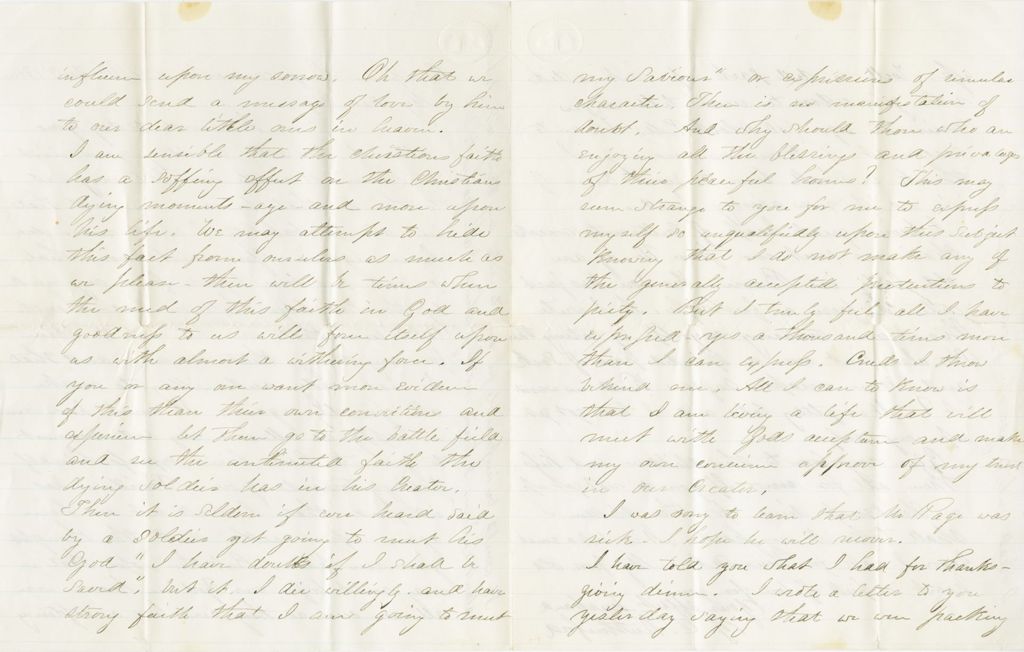 influence upon my sorrow. Oh that we
could send a message of love by him
to our dear little ones in heaven.
I am sensible that the christians faith
has a soffing effect on the Christians
dying moments - aye - and more upon
his life. We may attempt to hide
this fact from ourselves as much as
we please - there will be times when
the need of this faith in God and
goodness to us will force itself upon
us with almost a withering force. If
you or any one want more evidence
of this than their own convictions and
experience let them go to the battle field
and see the unlimited faith the
dying soldier has in his Creator.
Then it is seldom if ever heard said
by a soldier yet going to meet his
God "I have doubts if I shall be
saved", but it I die willingly and have
strong faith that I am going to meet
my Saviour" or expressions of similar
character. There is no manifestation of
doubt. And why should those who are
enjoying all the blessings and privaleges
of their peaceful homes? This may
seem strange to you for me to express
myself so unqualifiedly upon this subject
knowing that I do not make any of
the generally accepted pretentions to
piety. But I truly feel all I have
expressed - yes a thousand times more
than I can express. Creeds I throw
behind me. All I care to know is
that I am living a life that will
meet with Gods acceptance and make
my own concience approve of my trust
in our Creator.
I was sorry to learn that Mr Page was
sick. I hope he will recover.
I have told you what I had for thanks-
giving dinner. I wrote a letter to you
yesterday saying that we were packing